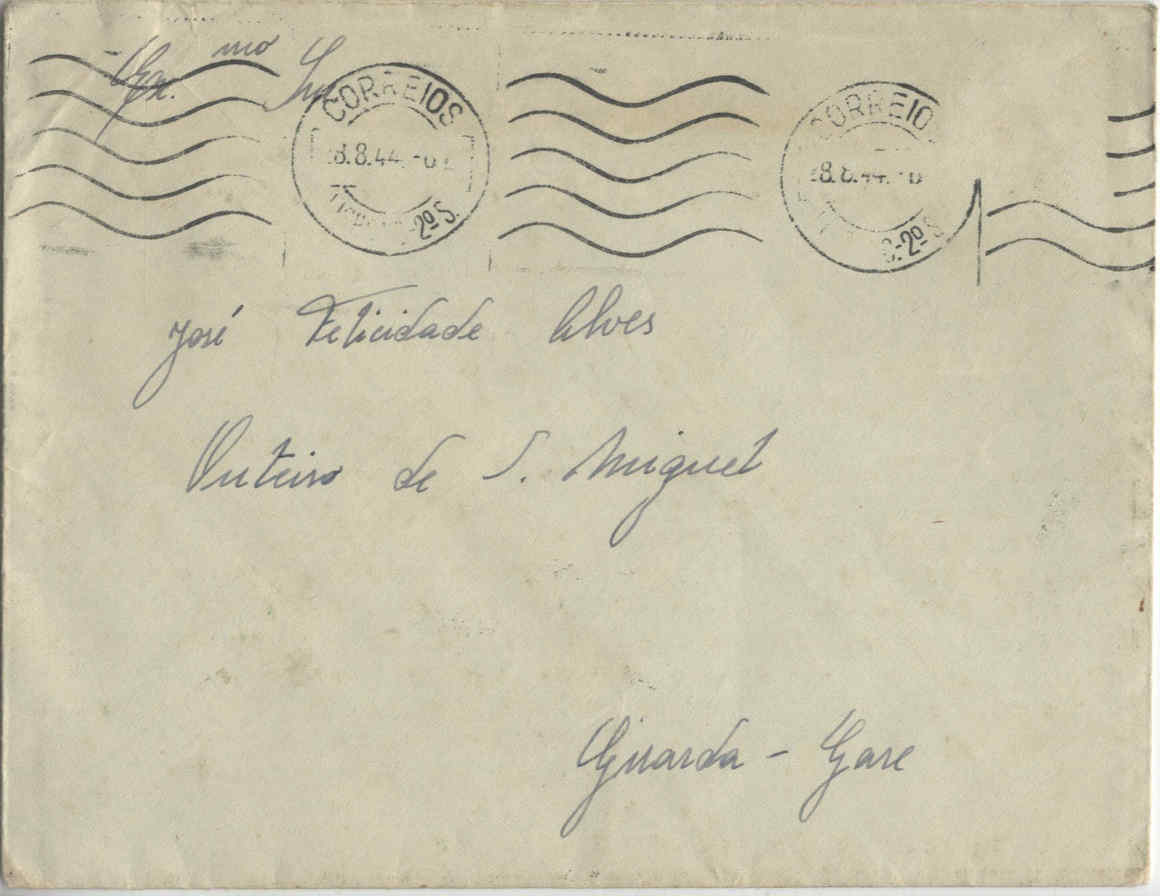 Ex.mo Snr
CORREIOS
8.8.44.
2º S.
CORREIO
8.8.44.
S-2º S
José Felicidade Alves
Outeiro de S. Miguel
Guarda - Gare